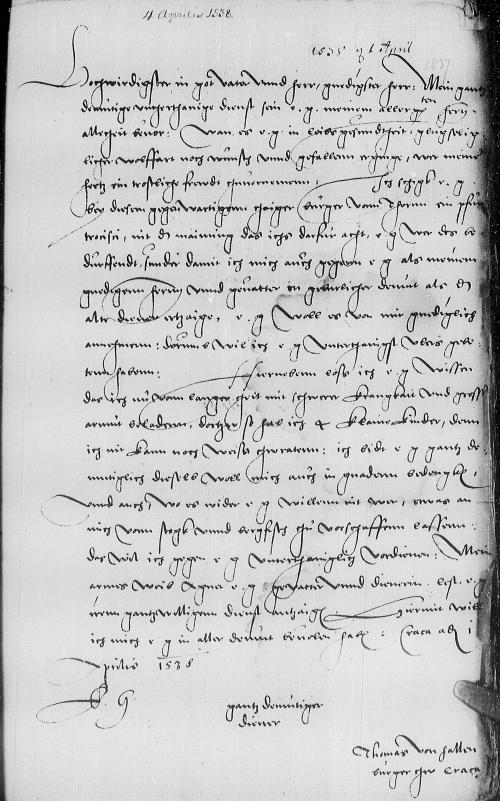 4 Aprilis 1538.
1538 1 April
1037
Hochwirdigster in got vater unnd herr, gnedigster herr: Mein gantz
demutige untherthanige dienst sein e. g. meinem aller herrn
altzeit bevor: Wan es e g in leibs gesundtheit, gluksselig
licher wolffart noch wunsch unnd gefallenn erginge, wer meins
hertz ein trostliche freudt chuvornemenn: Ich schyk e. g.
bey diesem gegenwartigenn burger vonn Thorn ein pfund
nit der mainung das ichs darfur acht, e g wer des be
durffendt, sunder damit ich mich auch gegenn e g als meinem
gnedigenn herrn unnd gevatter in geburlicher demut als der
alte diener ertzaige, e. g woll es von mir gnediglich
annehmenn: dorumb wil ich e g unterthanigst vleis gebe
tenn habenn: Hiernebenn loß ich e g wissen
das ich nu vonn langer zeit mit schwerer krangkait und gross
armut beladenn, dortzu so hab ich 4 klaine kinder, denn
ich nit kann noch weise chu ratenn: ich bidt e g gantz de
mutiglich dieselb woll mich auch in gnadenn bedengkn,
unnd auch, wo es wider e g willenn nit wer, etwas an
mich vom stogk unnd chu vorschaffenn lassenn:
das wil ich gegen e g unterthaniglich vordienen: Mein
armes weib Agnes e g gevatter unnd dienerin lest e g
irenn gantz willigenn dienst antzaign Hiermit will
ich mich e g in aller demut bevolen habn: Craca adi 1
Aprilis 1538
E. G.
gantz demutiger
diener
Thomas von Hallen
burger chw Craca